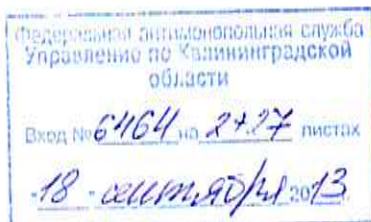 Федеральная антимонопольная служба
Управление по Калининградской
области
Вход № 6464 на 2+27 листах
"18" сентября 2013